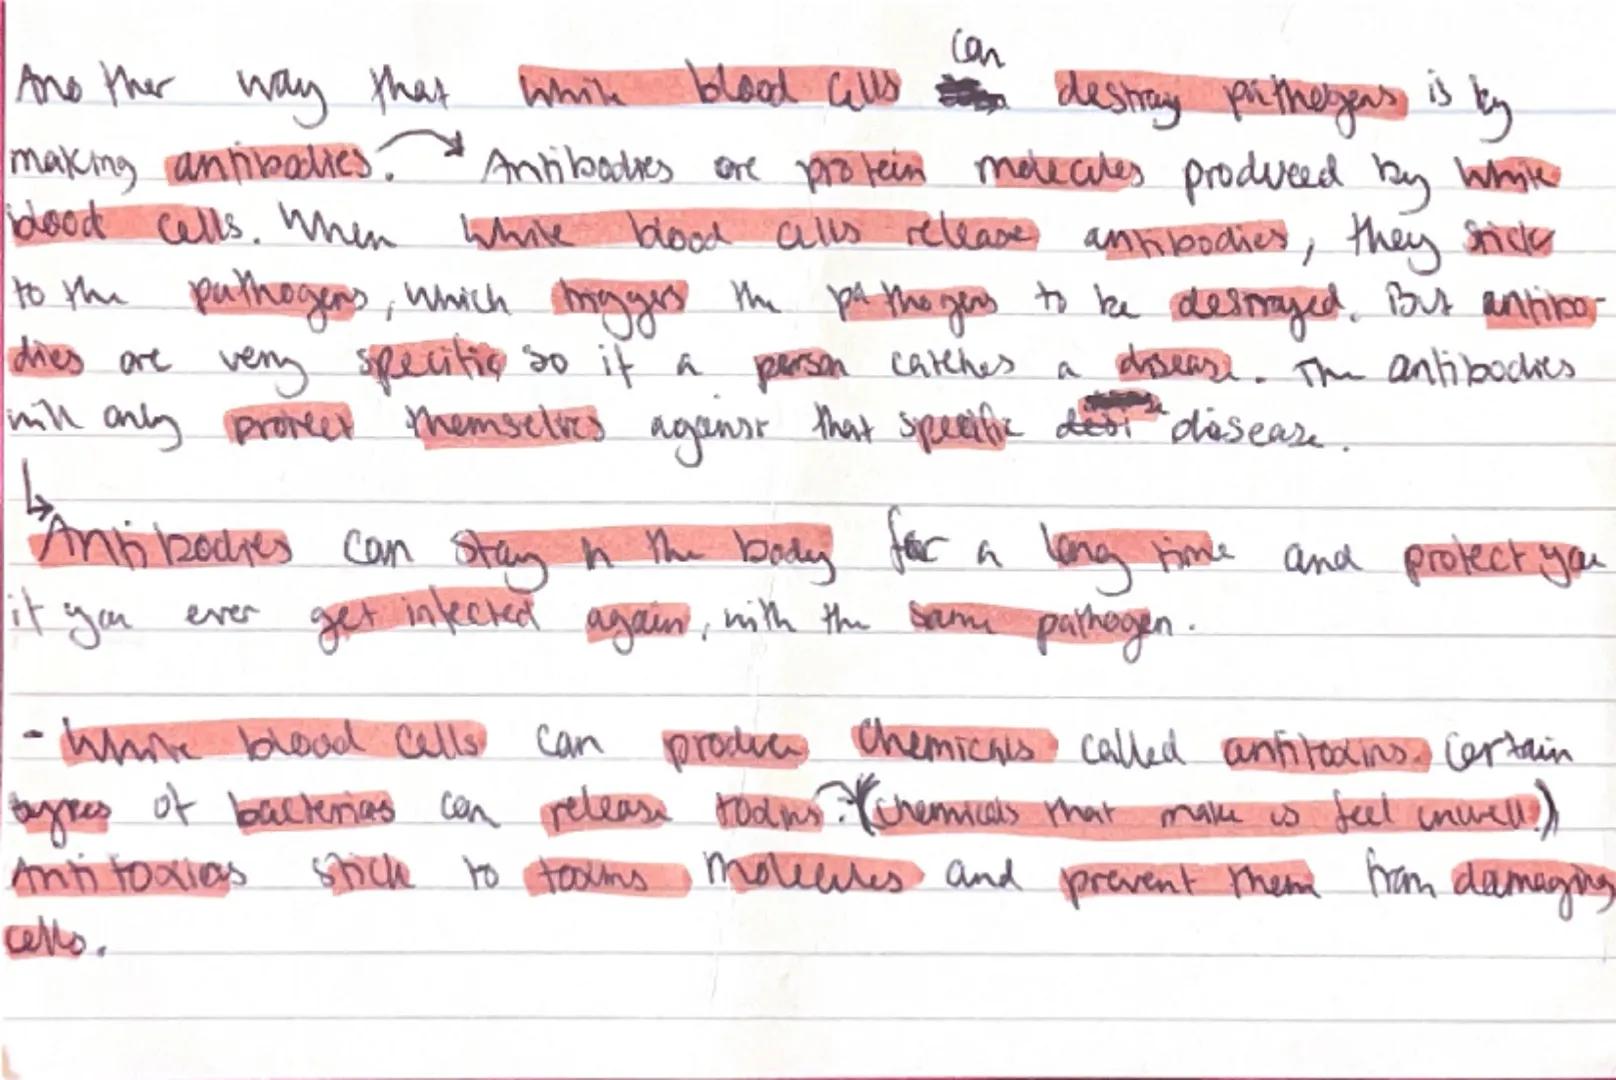 Another way that white blood cells can destroy pathogens is by
making antibodies. Antibodies are protein molecules produced by white
blood cells. When white blood cells release antibodies, they stick
to the pathogens, which triggers the pathogens to be destroyed. But antibo-
dies are very specific so if a person catches a disease. The antibodies
will only protect themselves against that specific disease.
Antibodies can stay in the body for a long time and protect you
if you ever get infected again, with the same pathogen.
- White blood cells can produce chemicals called antitoxins. Certain
types of bacterias can release toxins. (chemicals that make us feel unwell.)
Antitoxins stick to toxins molecules and prevent them from damaging
cells.